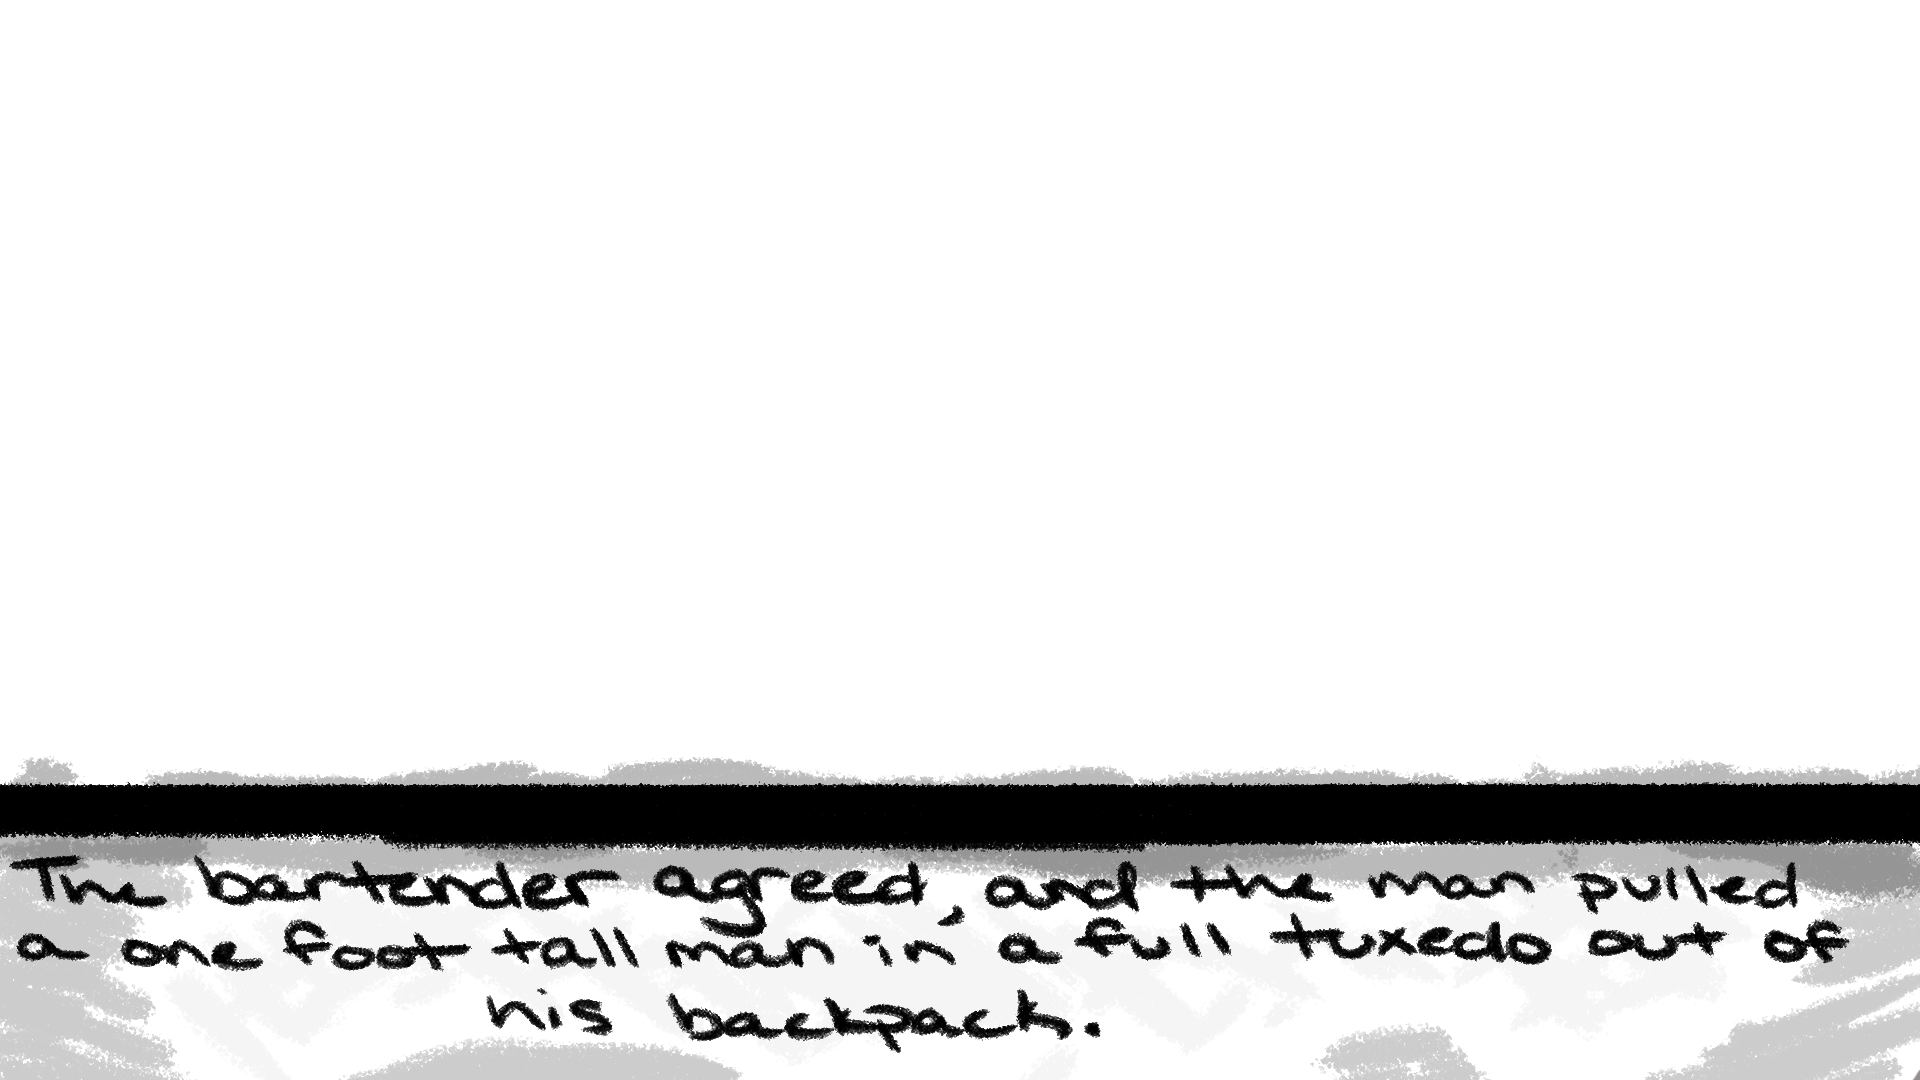 The bartender agreed, and the man pulled
a one foot tall man in a full tuxedo out of
his backpack.